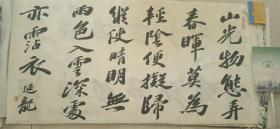 山光物態弄
春暉莫為
輕陰便擬歸
縱使晴明無
雨色入雲深處
亦霑衣